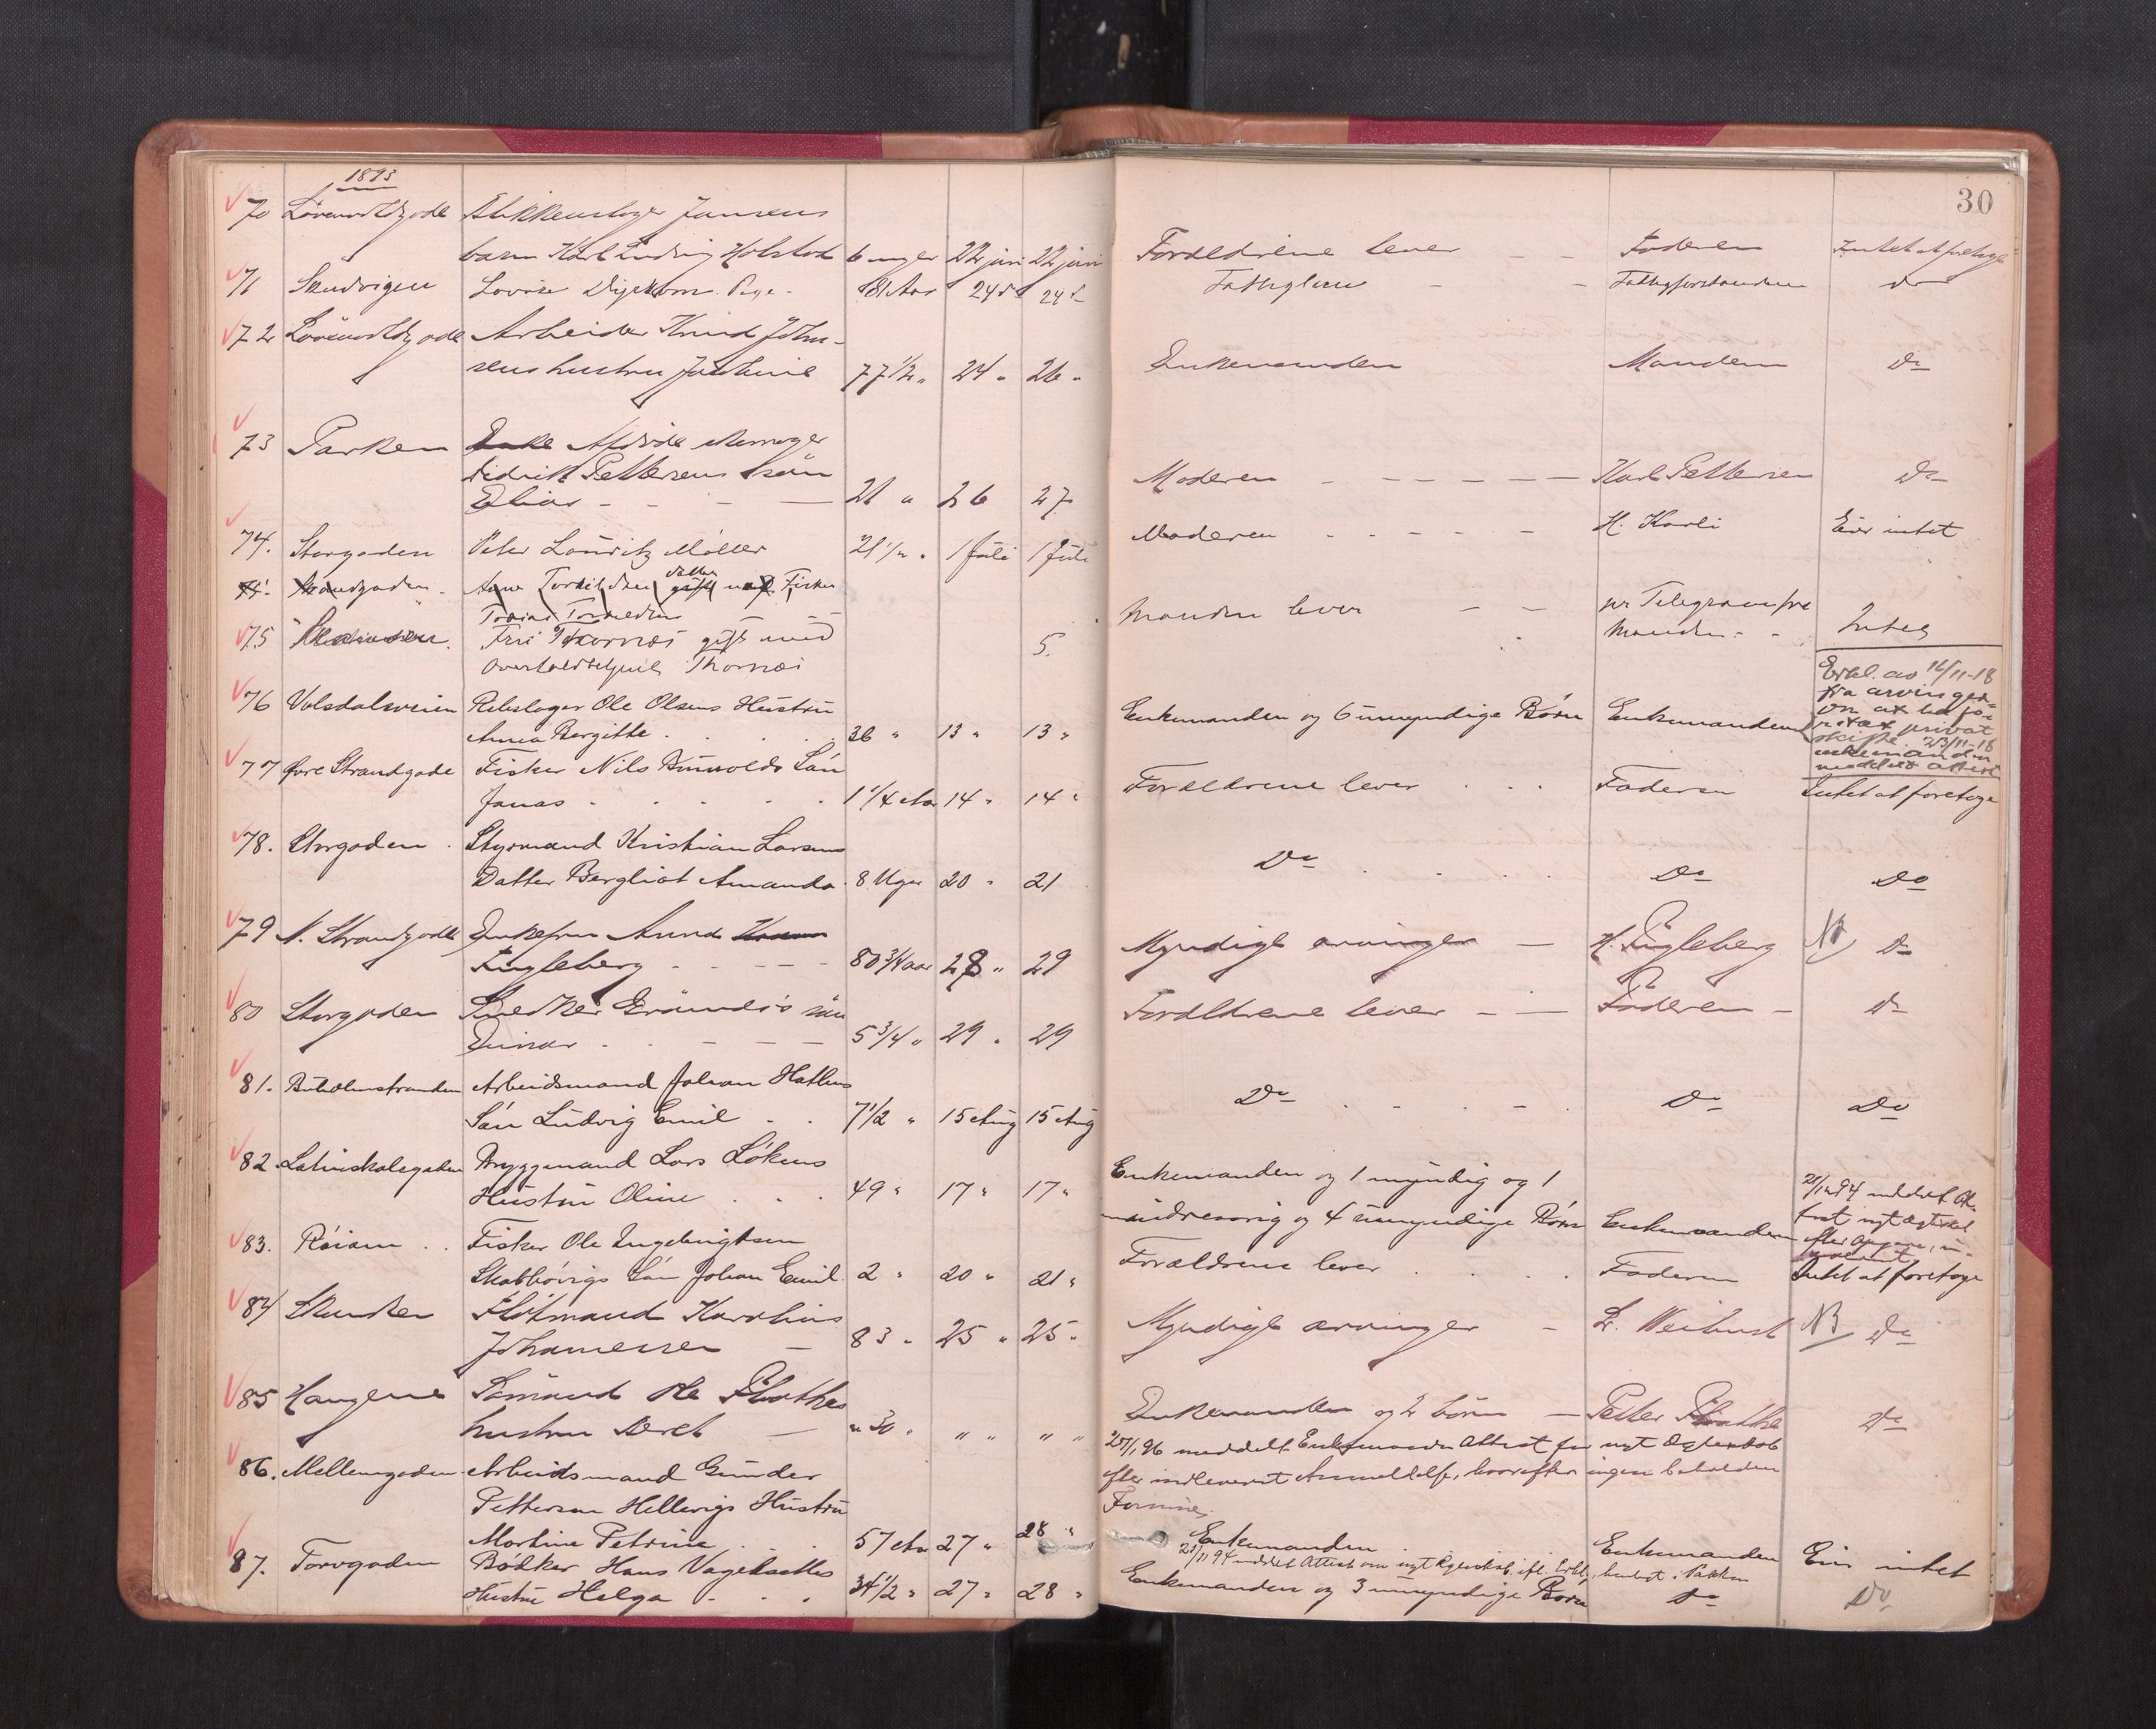 1893
30
70 Løvenvoldgade Blikkenslager Jansens
barn Karl Ludvig 6 uger 22 juni 22 juni Forældrene lever Faderen Intet at foretage
71 Skudvigen Lovise Pige 81 Aar 24 d 24 d Fattiglem Fattigforstanderen do
72 Løvenvoldgade Arbeider Knud John-
sens hustru 77 1/2 " 24 " 26 " Enkemanden Manden Do
73 Parken Enke Afdøde
Didrik Pettersens søn
Elias 21 " 26 27 Moderen Karl Pettersen Do
74. Storgaden Peter Lauritz Møller 21 1/2 " 1 Juli 1 Juli Moderen H. Karli Eier intet
Strandgaden datter gift med Fisker
75 Fru Thornæs gift med 5. Manden lever pr Telegram fra
Overtoldbetjent Thornæs Manden Intet
Erkl. av 16/11-18
fra arvinger
om at ha fo-
retat privat
skifte. 23/11-18
enkemanden
meddelt attest
76 Volsdalsveien Rebslager Ole Olsens Hustru
Anna Bergitte 36 " 13 " 13 " Enkemanden og 6 umyndige Børn Enkemanden
77 Øvre Strandgade Fisker Nils Søn
Jonas 1 1/4 Aar 14 " 14 " Forældrene lever Faderen Intet at foretage
78. Storgaden Styrmand Kristian Larsens
Datter Bergliot Amanda 8 Uger 20 " 21 Do Do Do
79 N. Strandgade Enkefru Anna
Fugleberg 80 3/4 aar 28 " 29 Myndige arvinger H. Fugleberg NB Do
80 Storgaden Snedker søn
Einar 5 3/4 " 29 " 29 Forældrene lever Faderen Do
81. Buholmstranden Arbeidsmand Johan Hatlens
Søn Ludvig Emil 7 1/2 " 15 Aug 15 Aug Do Do Do
82. Latinskolegaden Bryggemand Lars Løkens
Hustru Oline 49 " 17 " 17 " Enkemanden og 1 myndig og 1
mindreaarig og 4 umyndige Børn Enkemanden
94 meddelt At-
test nyt Ægteskab
efter
83. Røiam Fisker Ole Ingebrigtsen
Søn Johan Emil 2 " 20 " 21 " Forældrene lever Faderen Intet at foretage
84 Skansen Flotmand Karolius
Johannessen 83 " 25 " 25 " Myndige arvinger L. Weibust NB Do
85 Haugene Sømand Ole Flathes
hustru Beret " 30 " " " " " Enkemanden og 2 børn Petter Flathe Do
86. Mellemgaden Arbeidsmand Gunder
Pettersen Hellevigs Hustru
Martine Petrine 57 Aar 27 " 28 "
/1 96 meddelt Enkemanden Attest for nyt Ægteskab
efter indleveret Anmeldelse, hvorefter ingen beholden
Formue.
Enkemanden Enkemanden Eier intet
87. Torvgaden Bødker Hans
Hustru Helga 34 1/2 " 27 " 28 "
21/11 94 meddelt Attest om nyt Ægteskab efl. Erkl.
Enkemanden og 3 umyndige Børn Do Do